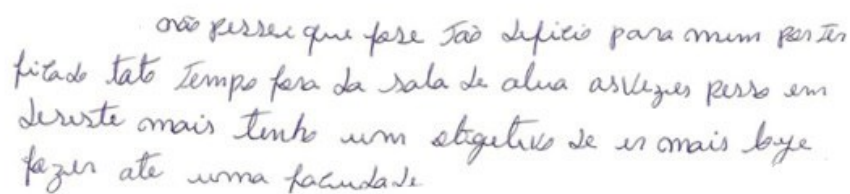 não pessei que fose Tão dificio para mim por Ter
ficado tato Tempo fora da sala de alua asvezes pesso em
desiste mais tenho um obigetivo de ir mais loge
fazer ate uma faculdade